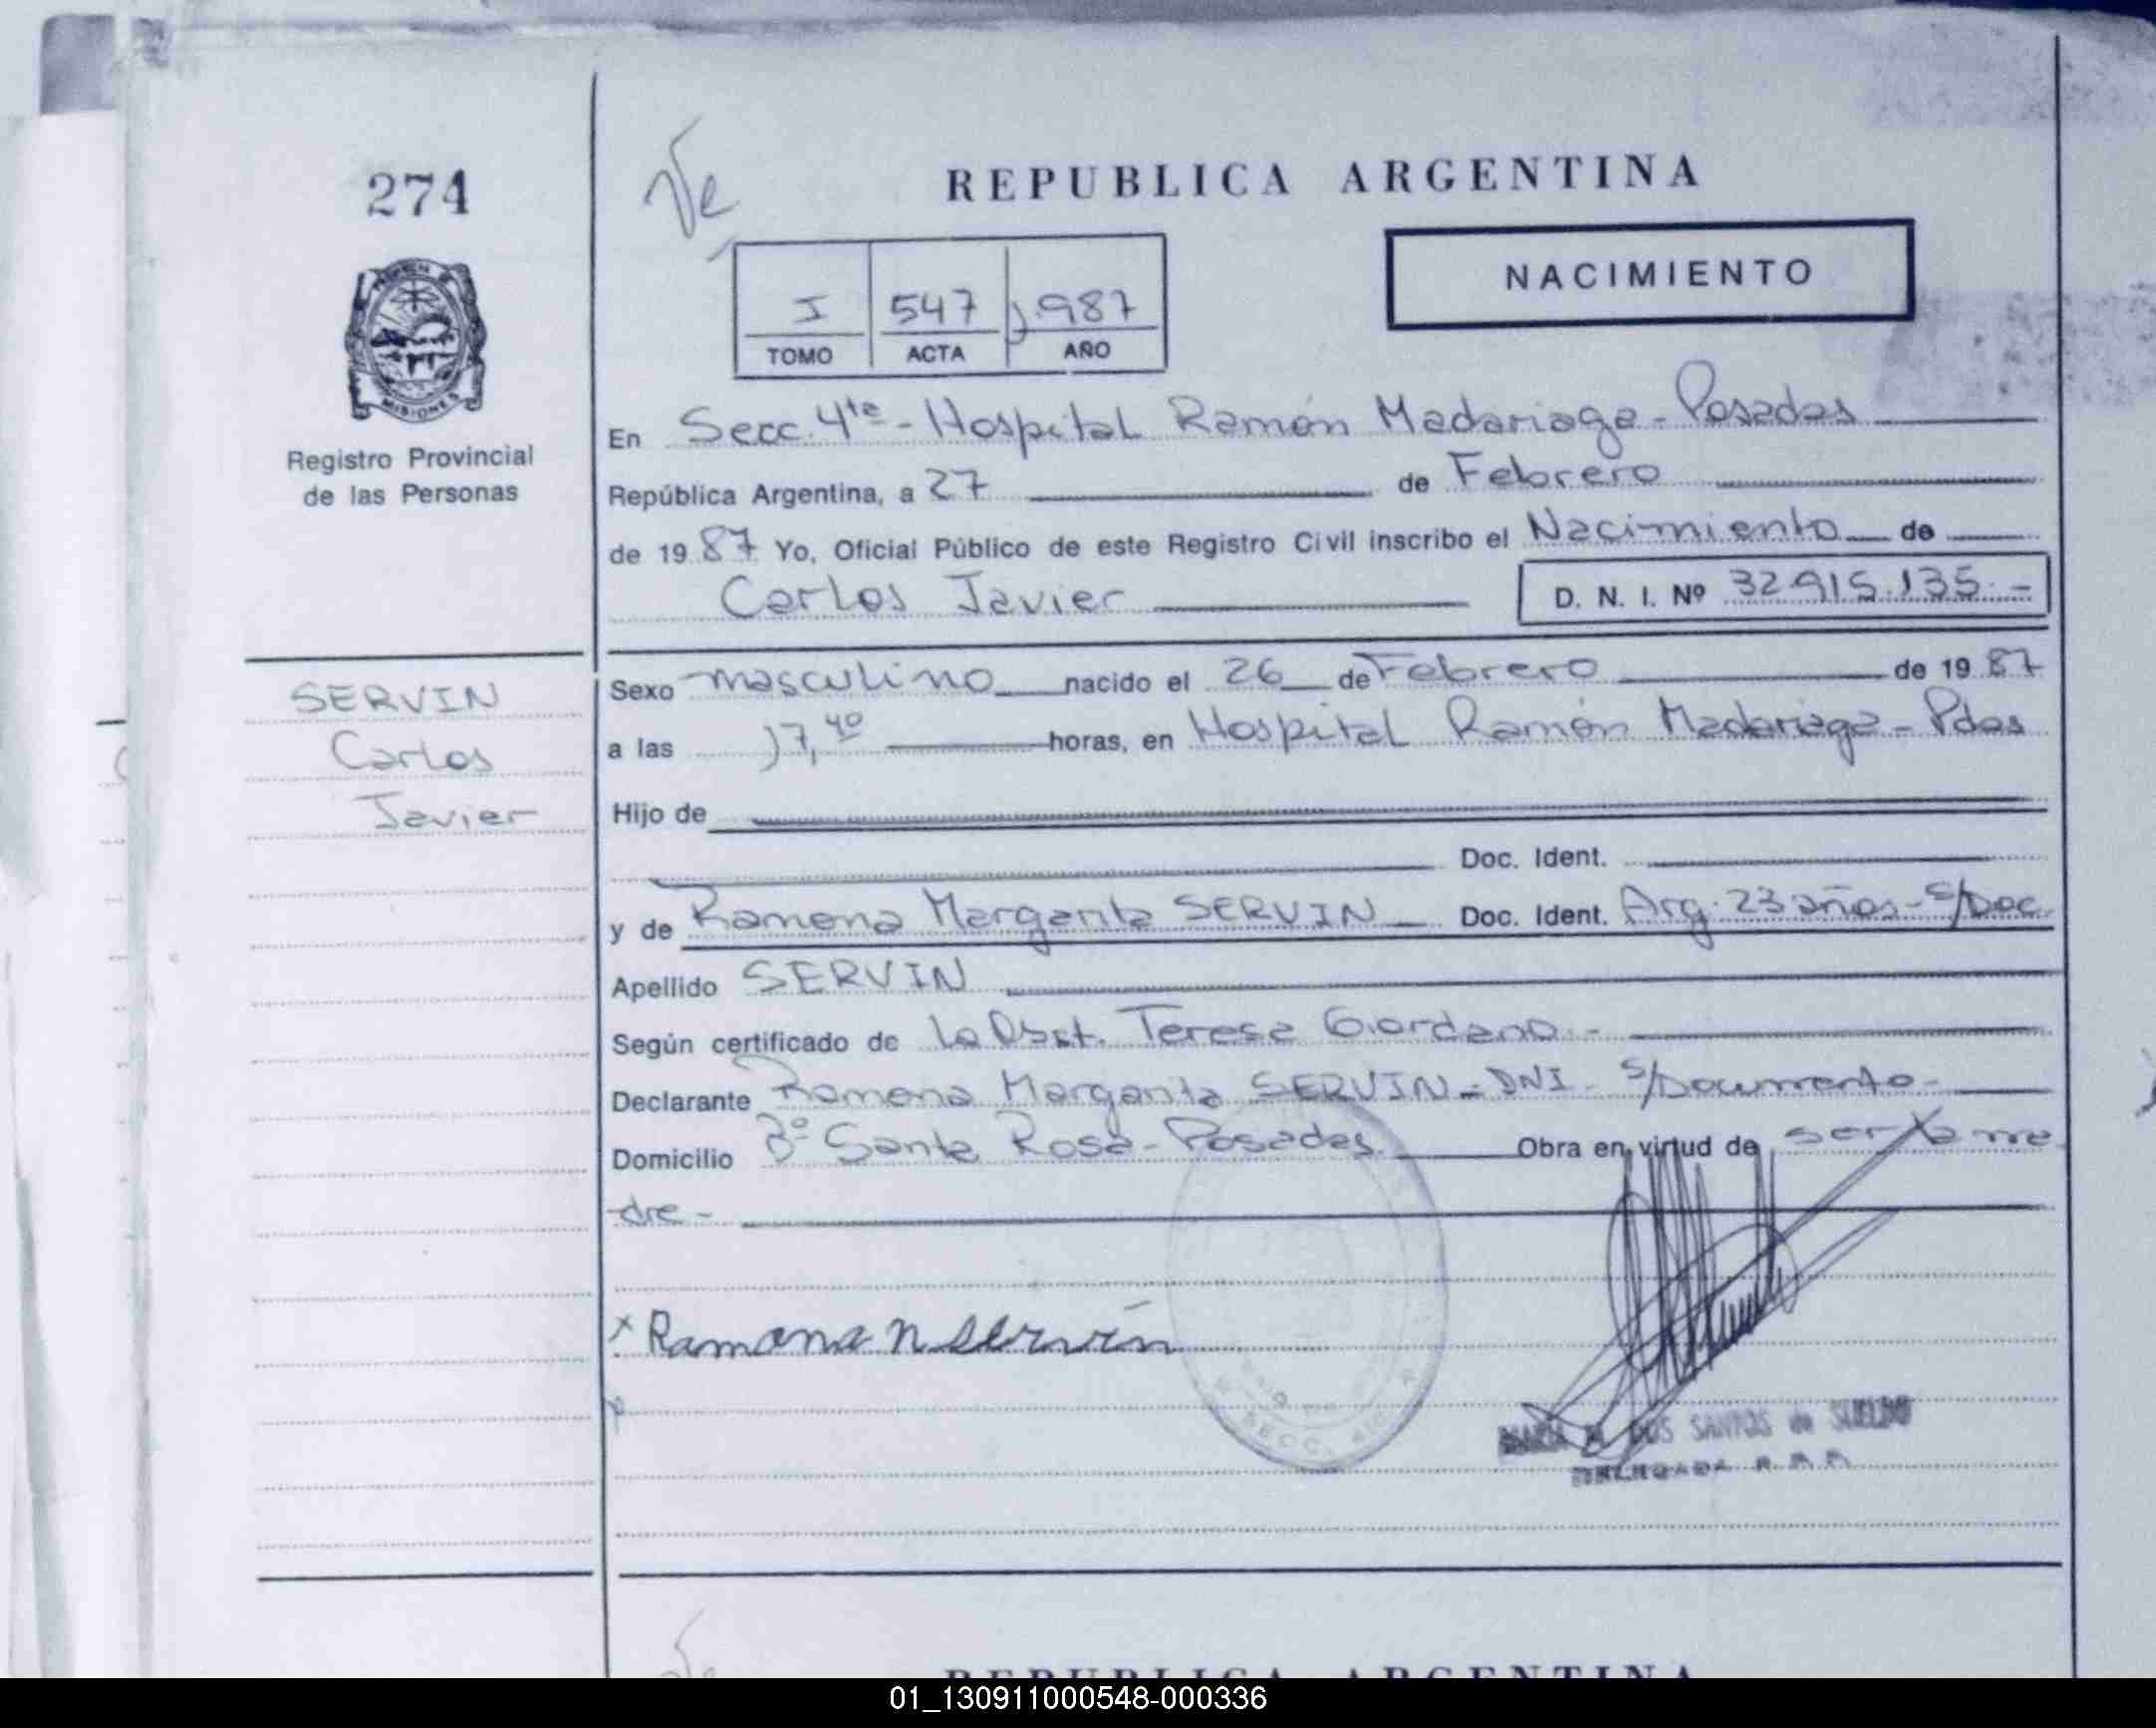 274
REPUBLICA ARGENTINA
NACIMIENTO
I 547 1.987
TOMO ACTA AÑO
MISIONES
Registro Provincial
de las Personas
En Secc. 4ta - Hospital Ramón Madariaga - Posadas
República Argentina, a 27 de Febrero
de 19 87 Yo, Oficial Público de este Registro Civil inscribo el Nacimiento de
Carlos Javier D. N. I. Nº 32.915.135.-
SERVIN
Carlos
Javier
Sexo masculino nacido el 26 de Febrero de 19 87
a las 17,40 horas, en Hospital Ramón Madariaga - Pdas
Hijo de
Doc. Ident.
y de Ramona Margarita SERVIN Doc. Ident. Arg. 23 años - s/Doc.
Apellido SERVIN
Según certificado de la Obst. Teresa Giordano.-
Declarante Ramona Margarita SERVIN - DNI - s/Documento -
Domicilio Bº Santa Rosa - Posadas Obra en virtud de ser la ma
dre -
x Ramona M Servín
SECC.
DOS SANTOS de SUELDO
DELEGADA
REPUBLICA ARGENTINA
01_130911000548-000336